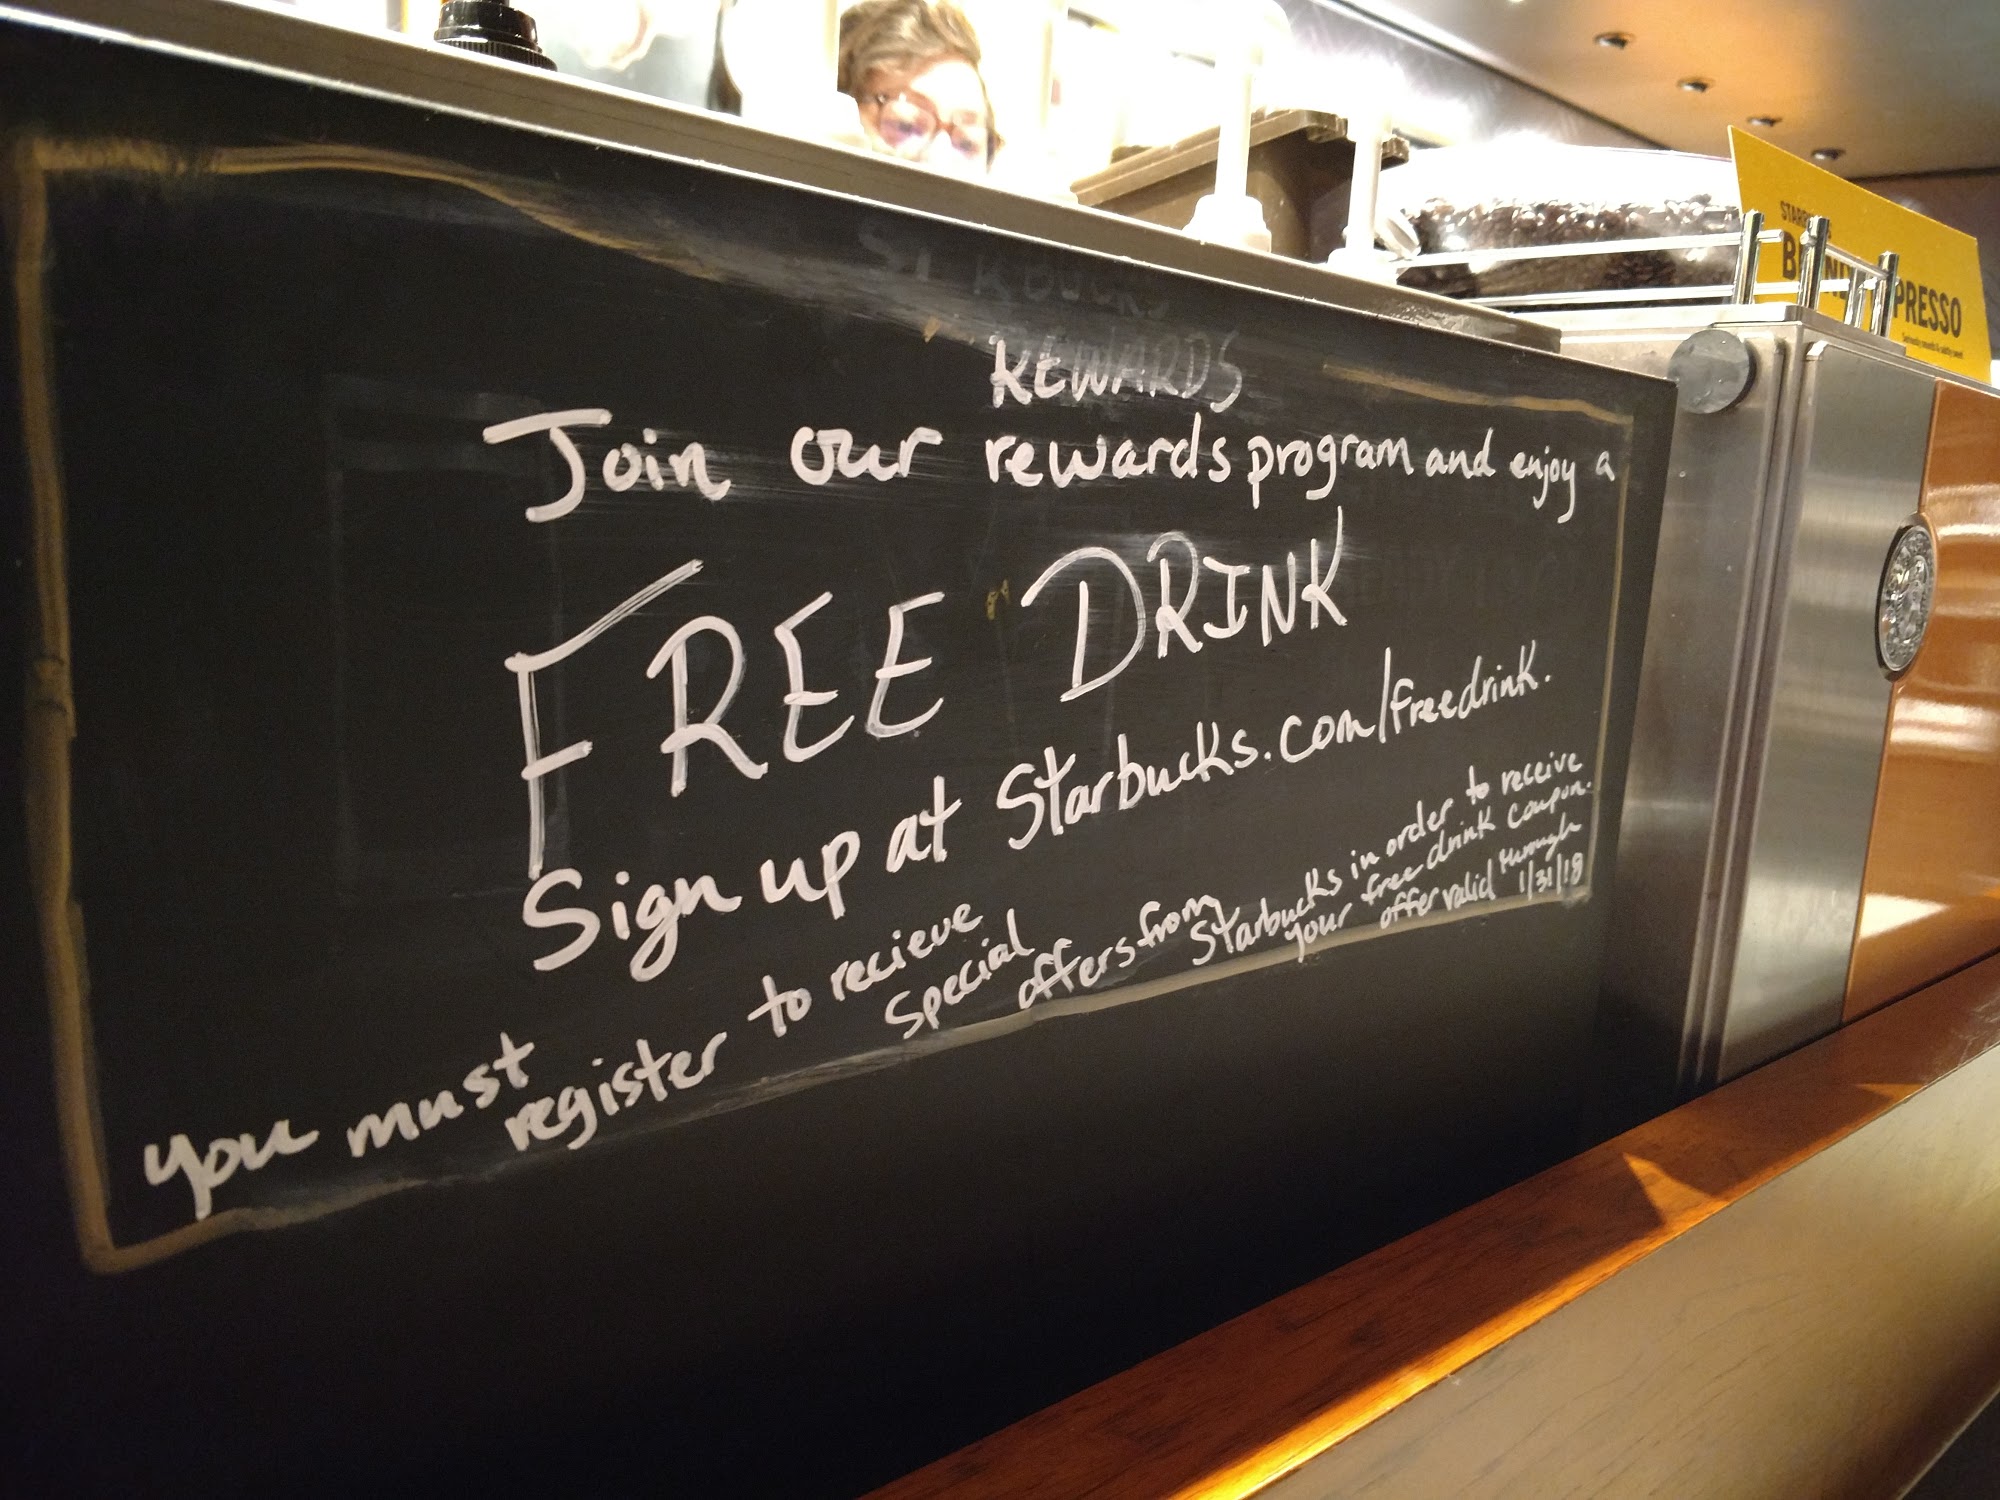 REWARDS
Join our rewards program and enjoy a
FREE DRINK
Sign up at Starbucks.com/freedrink.
you must register to recieve special offers from Starbucks in order to receive
your free drink coupon.
offer valid through
1/31/18
PRESSO